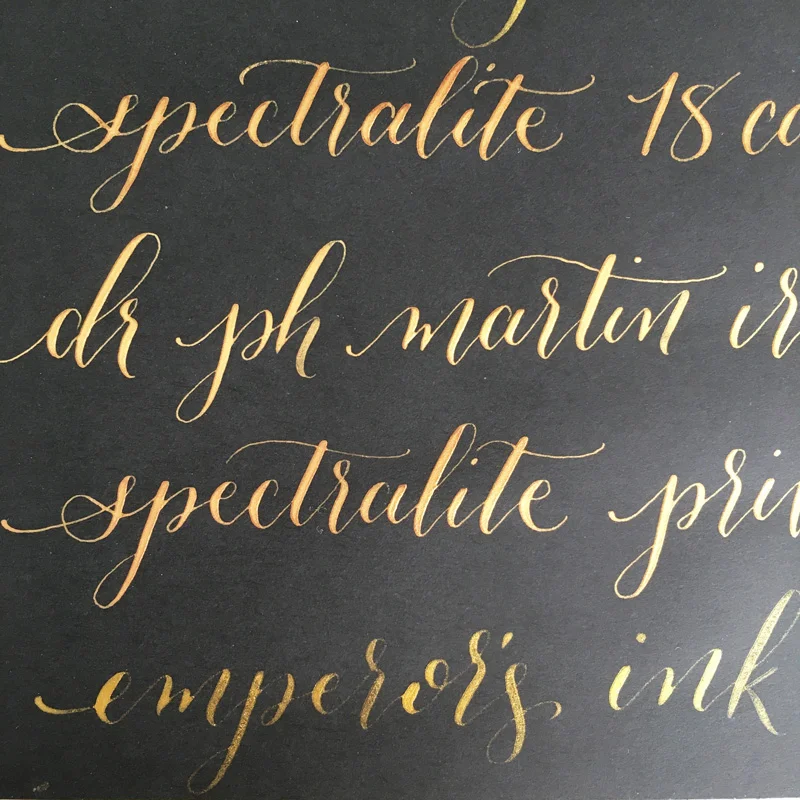 spectralite 18 ca
dr ph martin ir
spectralite pri
emperor's ink